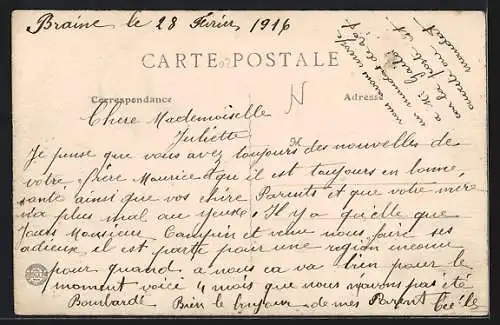 Braine le 28 Février 1916
CARTE POSTALE
Correspondance
Adresse
Chere Mademoiselle
Juliette
M
Je pense que vous avez toujours des nouvelles de
votre frere Maurice et qu'il est toujours en bonne
santé ainsi que vos chère Parents et que votre mere
n'a plus mal au yeux. Il y a qu'elle que
Jours Monsieur et venu nous faire ses
adieux il est partie pour une region inconu
pour quand a nous ca va bien pour le
moment voice " mais que nous navons pas été
Bombardé Bien le bonjour de mes Parent
nous vous
un mandat de
a Mr
la poste